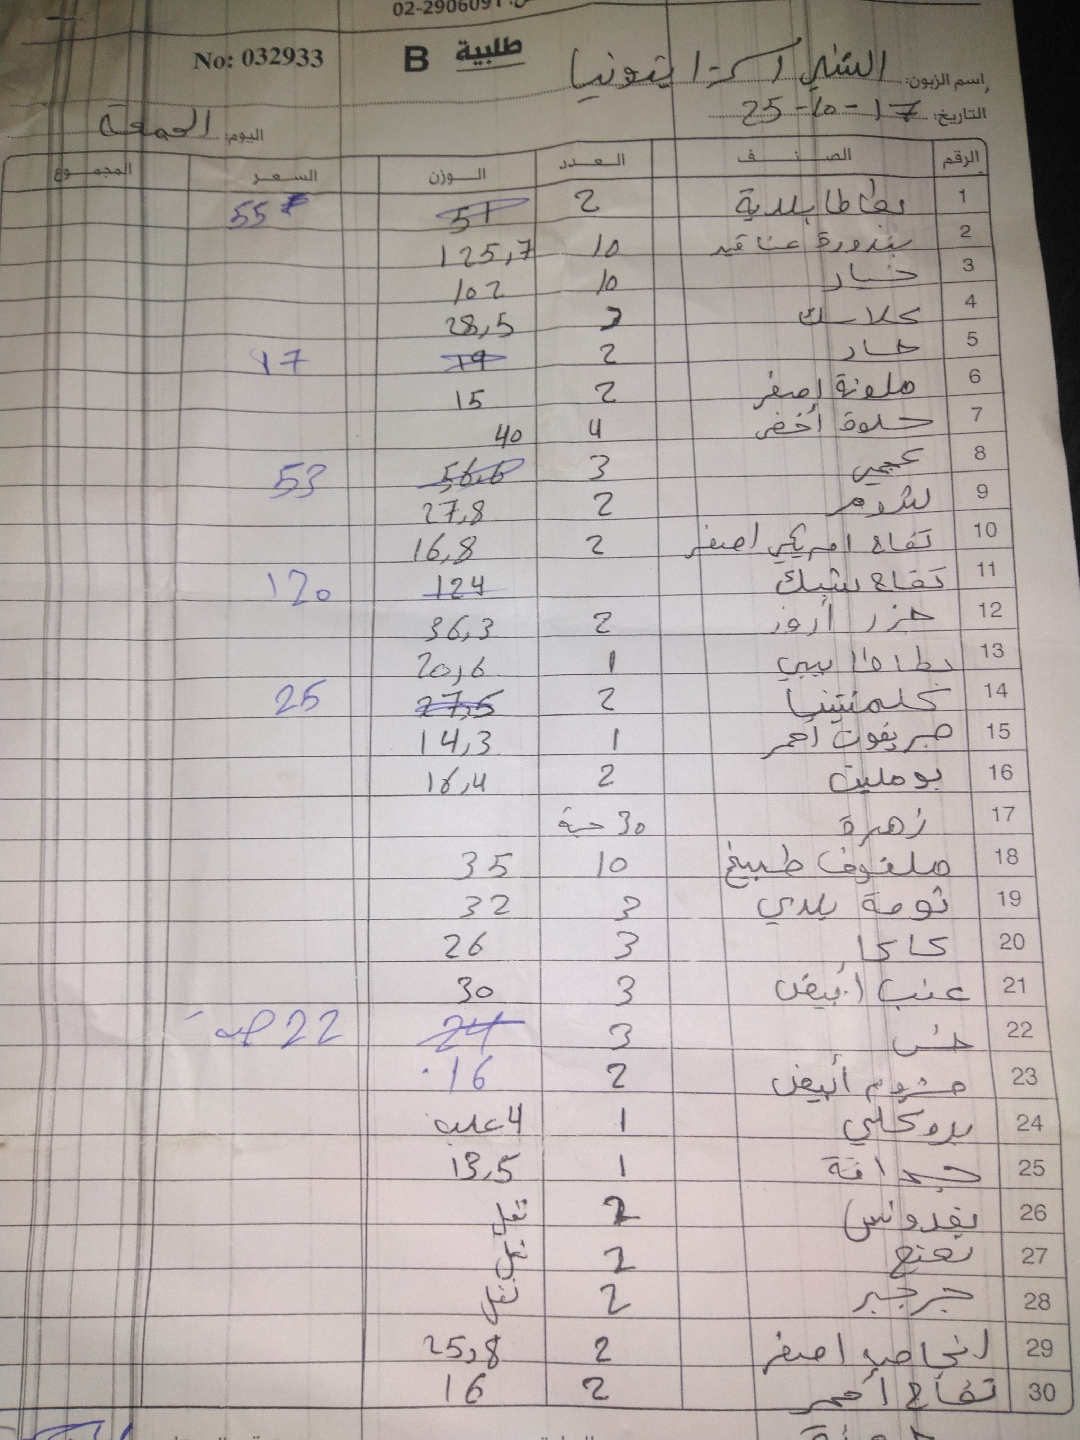 02-2906091
No: 032933 B طلبية
إسم الزبون: الشني
التاريخ: 17-10-25
اليوم: الجمعة
الرقم الصنف العدد الوزن السعر المجموع
1 بطاطا بلدية 2 57 55
2 بندورة عناقيد 10 125,7
3 خيار 10 102
4 كلاسك 2 28,5
5 حار 2 19 17
6 ملونة اصفر 2 15
7 حلوة أخضر 4 40
8 عجمي 3 56,6 53
9 2 27,8
10 تفاح امريكي اصفر 2 16,8
11 تفاح شبك 124 120
12 جزر أروز 2 36,3
13 بطاطا بيبي 1 20,6
14 كلمنتينيا 2 27,5 25
15 جريفوت احمر 1 14,3
16 بومليت 2 16,4
17 زهرة 30 حبة
18 ملفوف طبيخ 10 35
19 ثومة بلدي 3 32
20 كاكا 3 26
21 عنب أبيض 3 30
22 خس 3 24 22
23 مشروم أبيض 2 16
24 بروكلي 1 4 علب
25 1 13,5
26 بقدونس 2
27 نعنع 2
28 جرجير 2
29 انجاص اصفر 2 25,8
30 تفاح أحمر 2 16